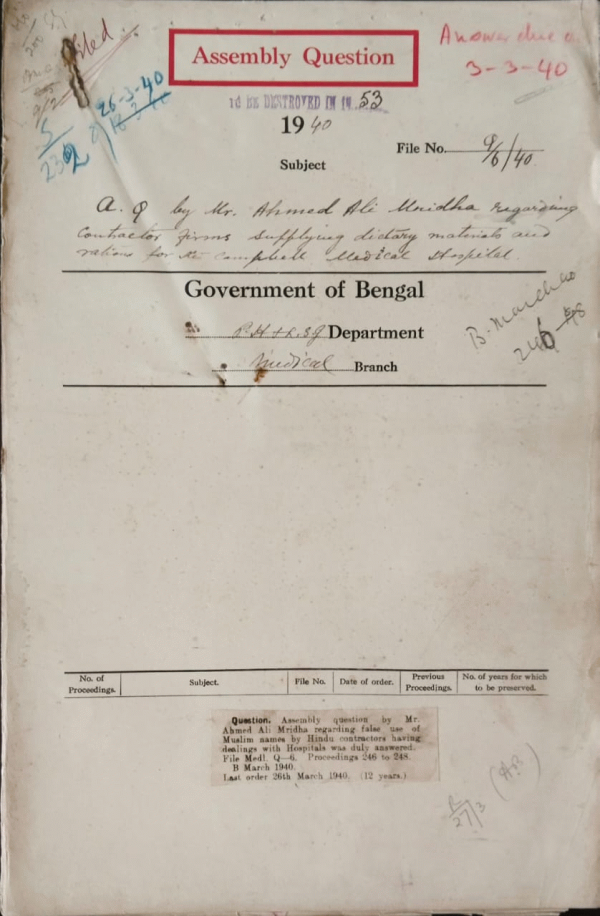 Filed
Assembly Question
Answer due on
3-3-40
26-3-40
TO BE DESTROYED IN 19 53
1940
File No. Q/6/40
Subject
A. Q by Mr. Ahmed Ali Mridha regarding
Contractor firms supplying dietary materials and
rations for the Campbell Medical Hospital.
Government of Bengal
P.H & L.S.G Department
Medical Branch
B. March 40
246-48
No. of Proceedings.
Subject.
File No.
Date of order.
Previous Proceedings.
No. of years for which to be preserved.
Question. Assembly question by Mr.
Ahmed Ali Mridha regarding false use of
Muslim names by Hindu contractors having
dealings with Hospitals was duly answered.
File Medl. Q—6. Proceedings 246 to 248.
B March 1940.
Last order 26th March 1940. (12 years.)
27/3